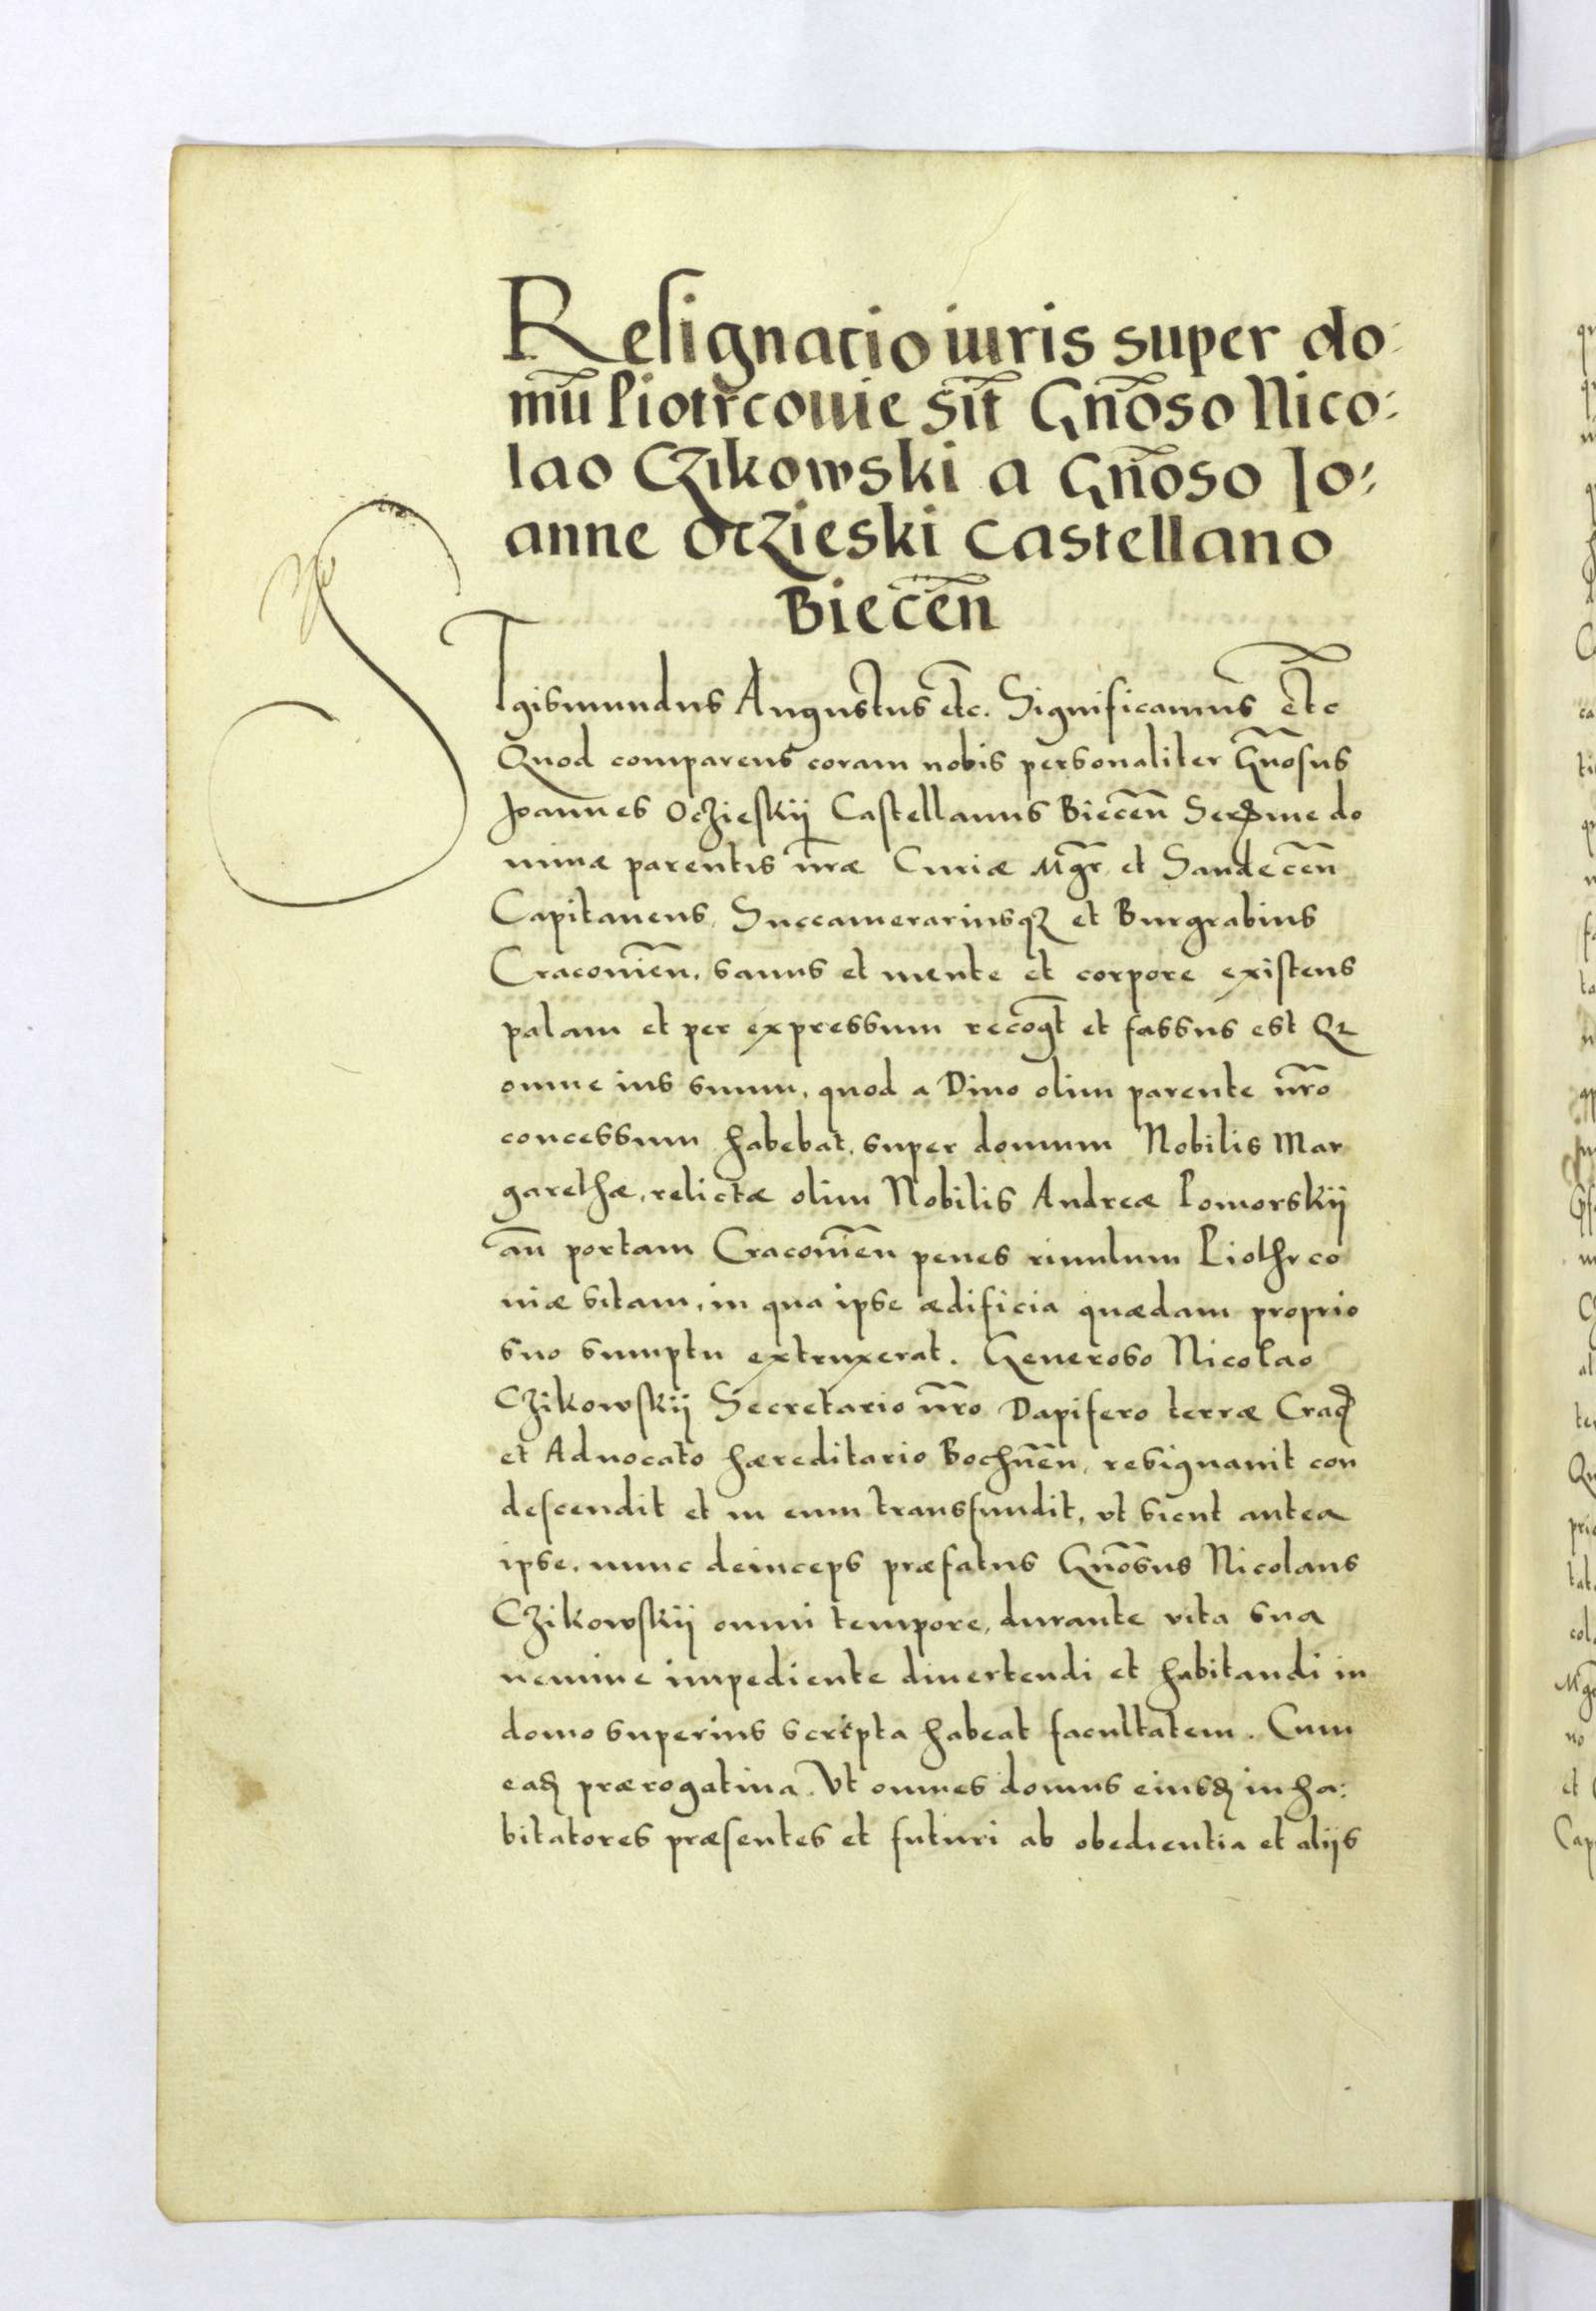 Resignatio iuris super do:
mū Piotrcouie sit̄ Gn̄oso Nico:
lao Czikowski a Gn̄oso Jo:
anne Oczieski Castellano
Biecen̄
SIgismundus Augustus etc. Significamus etc
Quod comparens coram nobis personaliter Gn̄osus
Joannes Oczieskij Castellanus Biecen̄ Ser
minæ parentis n̄ræ Curiæ Mgr̄ et Sandecen̄
Capitaneus, Succamerariusqꝫ et Burgrabius
Cracovien̄, sanus et mente et corpore existens
palam et per expressum recogt̄ et fassus est Qꝛ
omne ius suum, quod a Diuo olim parente n̄ro
concessum habebat, super domum Nobilis Mar
garethæ, relictæ olim Nobilis Andreæ Pomorskij
an̄ portam Cracovien̄ penes riuulum Piothrco
uiæ sitam, in qua ipse ædificia quædam proprio
suo sumptu extruxerat. Generoso Nicolao
Czikowskij Secretario n̄ro Dapifero terræ Crac̄
et Aduocato hæreditario Bochnen̄, resignauit con
descendit et in eum transfundit, vt sicut antea
ipse, nunc deinceps præfatus Gn̄osus Nicolaus
Czikowskij omni tempore, durante vita sua
nemine impediente diuertendi et habitandi in
domo superius scripta habeat facultatem. Cum
eadꝫ prærogatiua. Vt omnes domus eiusdꝫ inha:
bitatores præsentes et futuri ab obedientia et alijs